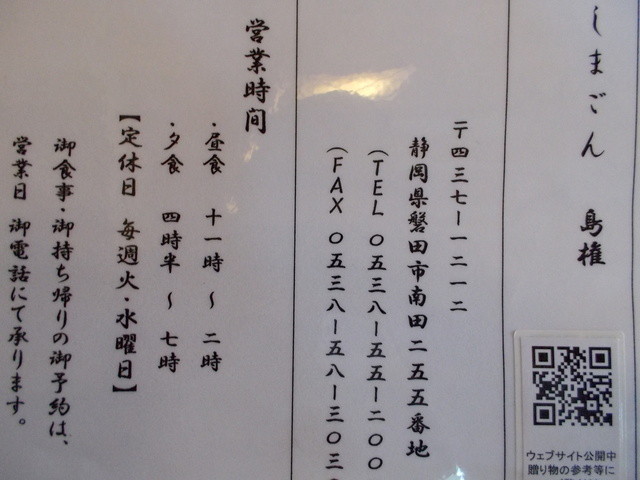 しまごん 島権
〒四三七ー一二一二
静岡県磐田市南田二五五番地
(TEL 〇五三八ー五五ー二〇〇
(FAX 〇五三八ー五八ー三〇三
営業時間
・昼食 十一時 ～ 二時
・夕食 四時半 ～ 七時
【定休日 毎週火・水曜日】
御食事・御持ち帰りの御予約は、
営業日 御電話にて承ります。
ウェブサイト公開中
贈り物の参考等に